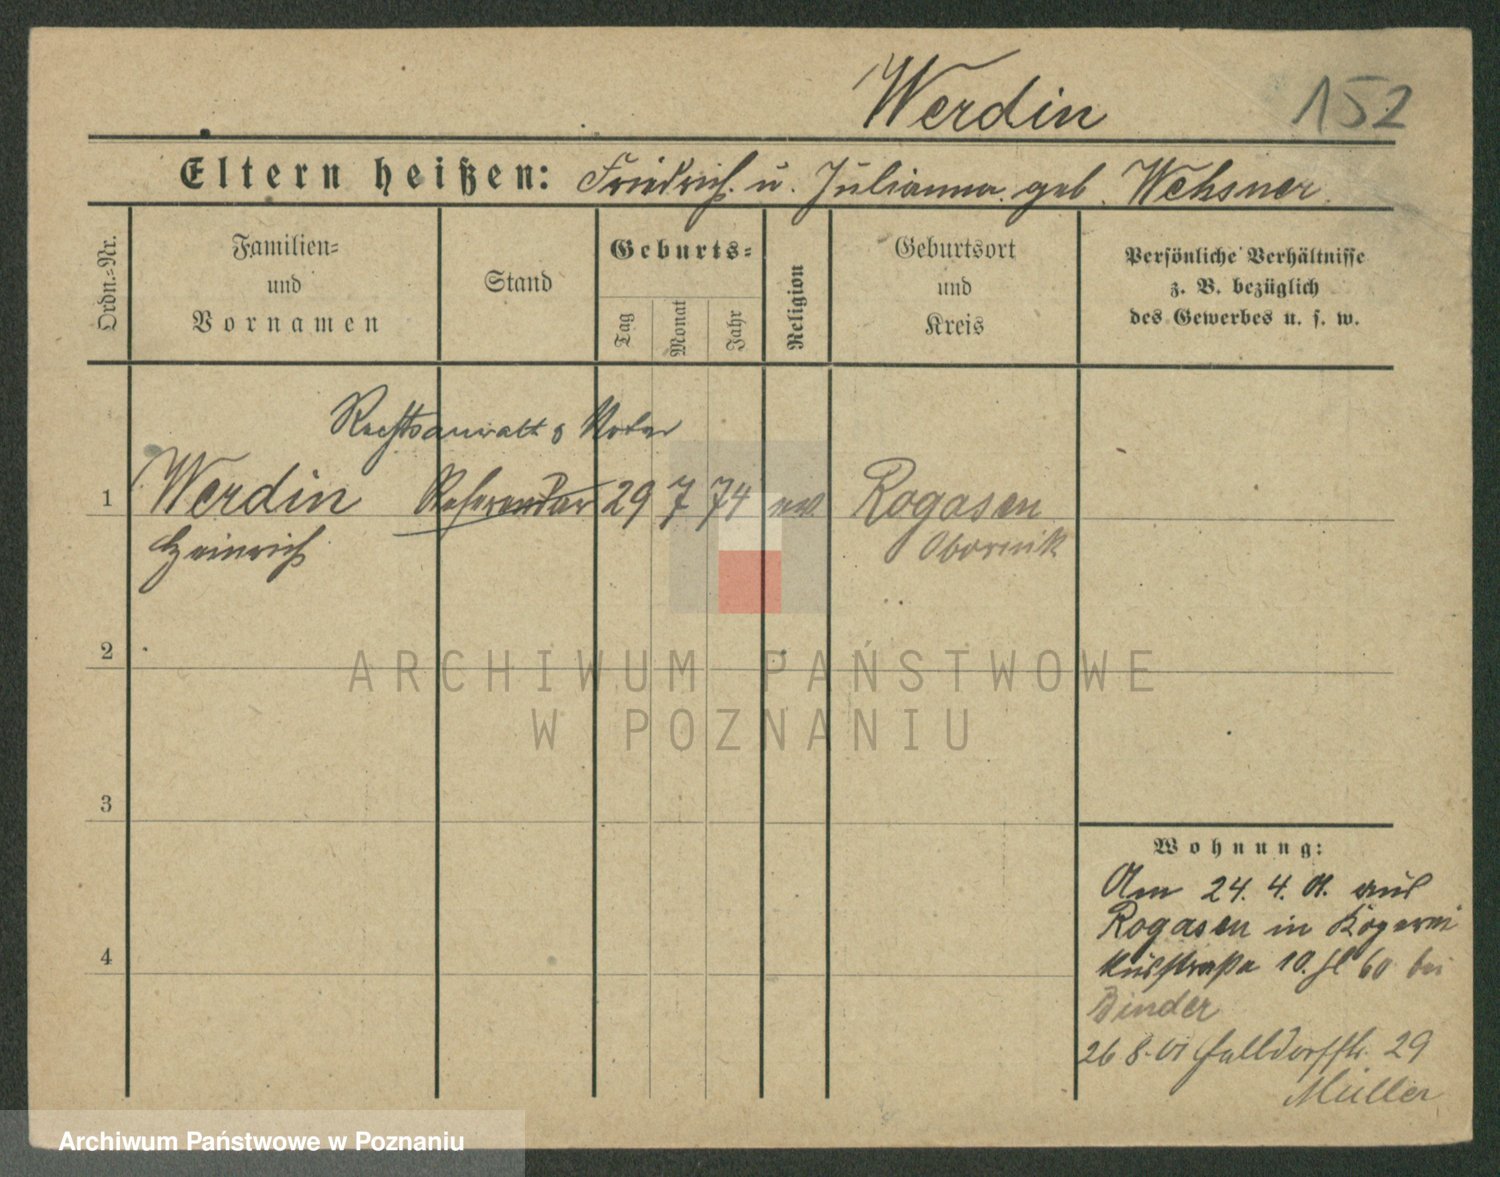 Werdin 152
Eltern heißen: Friedrich u. Julianna geb. Wehsner.
Ordn.-Nr.
Familien-
und
Vornamen
Stand
Geburts-
Tag
Monat
Jahr
Religion
Geburtsort
und
Kreis
Persönliche Verhältnisse
z. B. bezüglich
des Gewerbes u. s. w.
Rechtsanwalt & Notar
1 Werdin Referendar 29 7 74 ev. Rogasen
Heinrich Obornik
2
3
4
Wohnung:
Am 24. 4. 01. aus
Rogasen in
10. 60 bei
Binder
26 8. 01 29
Müller
ARCHIWUM PAŃSTWOWE
W POZNANIU
Archiwum Państwowe w Poznaniu